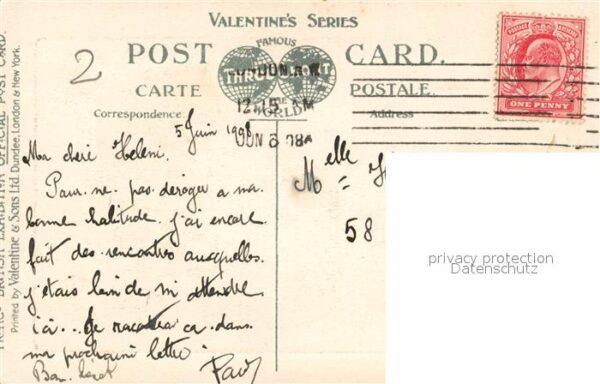 VALENTINE'S SERIES
2
POST CARD.
FAMOUS
THROUGHOUT
THE
WORLD
LONDON. S.W.
12.15 AM
JUN 6 08
CARTE POSTALE.
Correspondence. Address
ONE PENNY
FRANCO BRITISH EXHIBITION OFFICIAL POST CARD.
Printed by Valentine & Sons Ltd. Dundee, London & New York.
5 Juin 1908
Ma chère Helene
Pour ne pas déroger a ma
bonne habitude j'ai encore
fait des rencontres auxquelles
j'étais loin de m'attendre
ici... Je raconterai ça dans
ma prochaine lettre.
Bon
Paul
Melle
58
privacy protection
Datenschutz